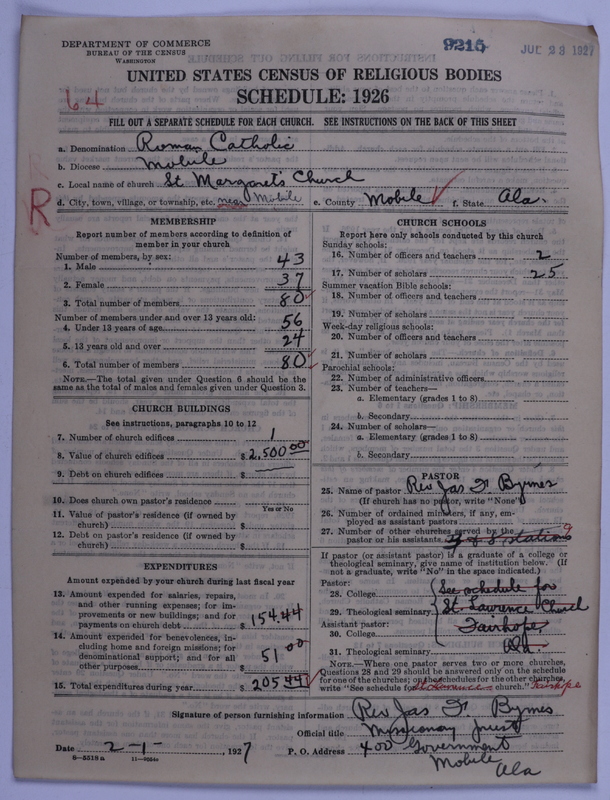 DEPARTMENT OF COMMERCE
BUREAU OF THE CENSUS
WASHINGTON
9215
JUL 28 1927
UNITED STATES CENSUS OF RELIGIOUS BODIES
SCHEDULE: 1926
64
FILL OUT A SEPARATE SCHEDULE FOR EACH CHURCH. SEE INSTRUCTIONS ON THE BACK OF THIS SHEET
a. Denomination Roman Catholic
b. Diocese Mobile
c. Local name of church St Margaret's Church
R
d. City, town, village, or township, etc. near Mobile e. County Mobile f. State Ala.
MEMBERSHIP
Report number of members according to definition of member in your church
Number of members, by sex:
1. Male 43
2. Female 37
3. Total number of members 80
Number of members under and over 13 years old:
4. Under 13 years of age 56
5. 13 years old and over 24
6. Total number of members 80
NOTE.—The total given under Question 6 should be the
same as the total of males and females given under Question 3.
CHURCH BUILDINGS
See instructions, paragraphs 10 to 12
7. Number of church edifices 1
8. Value of church edifices $ 2,500 00
9. Debt on church edifices $
10. Does church own pastor's residence
Yes or No
11. Value of pastor's residence (if owned by
church) $
12. Debt on pastor's residence (if owned by
church) $
EXPENDITURES
Amount expended by your church during last fiscal year
13. Amount expended for salaries, repairs,
and other running expenses; for im-
provements or new buildings; and for
payments on church debt $ 154.44
14. Amount expended for benevolences, in-
cluding home and foreign missions; for
denominational support; and for all
other purposes $ 51 00
15. Total expenditures during year $ 205 44
CHURCH SCHOOLS
Report here only schools conducted by this church
Sunday schools:
16. Number of officers and teachers 2
17. Number of scholars 25
Summer vacation Bible schools:
18. Number of officers and teachers
19. Number of scholars
Week-day religious schools:
20. Number of officers and teachers
21. Number of scholars
Parochial schools:
22. Number of administrative officers
23. Number of teachers—
a. Elementary (grades 1 to 8)
b. Secondary
24. Number of scholars—
a. Elementary (grades 1 to 8)
b. Secondary
PASTOR
25. Name of pastor Rev Jas F Byrnes
(If church has no pastor, write "None")
26. Number of ordained ministers, if any, em-
ployed as assistant pastors
27. Number of other churches served by the 9
pastor or his assistants stations
If pastor (or assistant pastor) is a graduate of a college or
theological seminary, give name of institution below. (If
not a graduate, write "No" in the space indicated)
Pastor:
28. College See schedule for
29. Theological seminary St. Lawrence Church
Assistant pastor: Fairhope
30. College
31. Theological seminary Ala
NOTE.—Where one pastor serves two or more churches,
Questions 28 and 29 should be answered only on the schedule
for one of the churches; on the schedules for the other churches,
write "See schedule for St. Lawrence church." Fairhope
Signature of person furnishing information Rev Jas F. Byrnes
Official title Missionary priest
Date 2-1-, 1927 P. O. Address 400 Government
Mobile Ala
6—5518a 11—9064